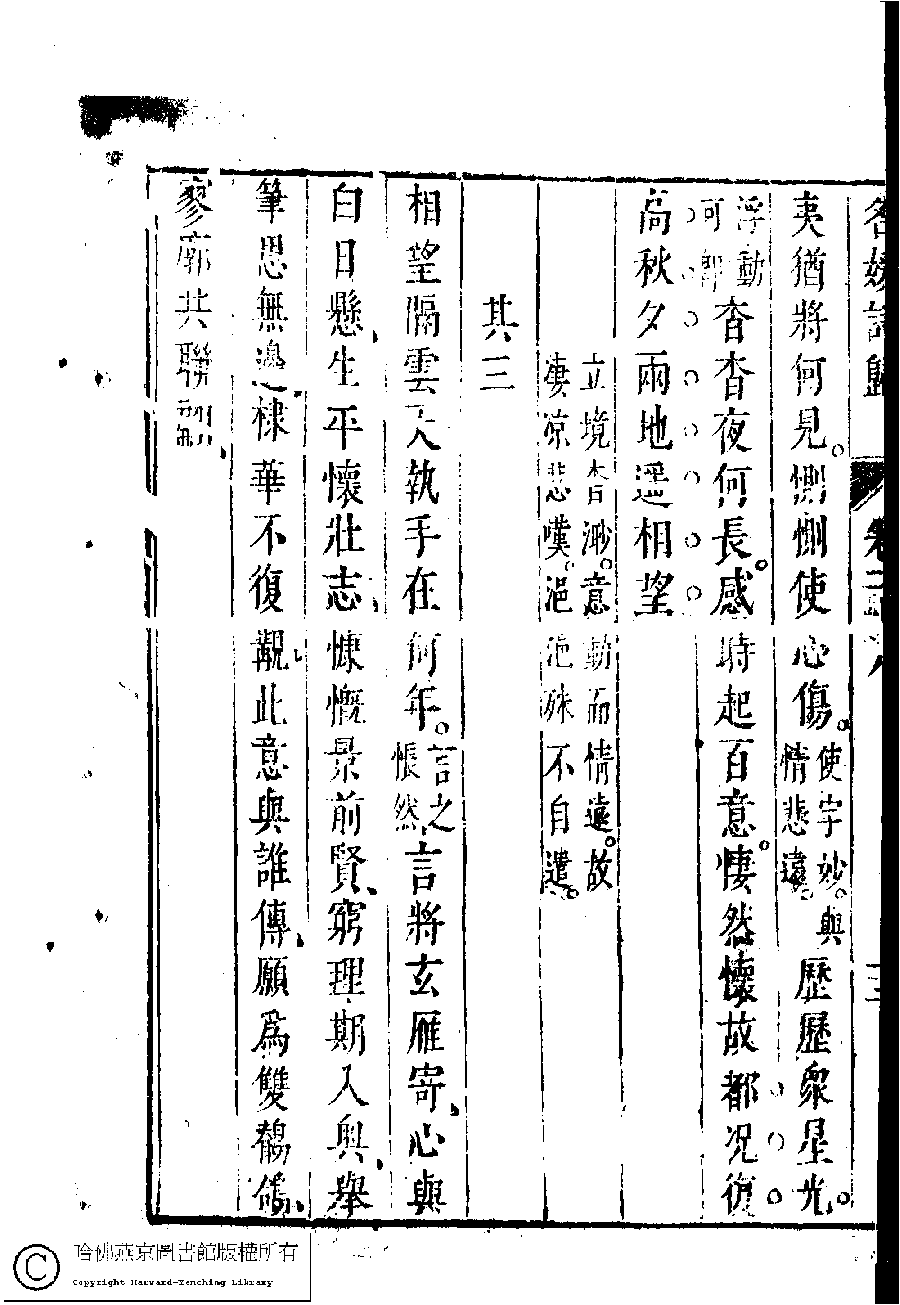 名媛詩歸 卷三 三
夷猶將何見惻惻使心傷使字妙與情悲遠歷歷衆星光
浮動可郷杳杳夜何長感時起百意悽然懷故都况復
高秋夕兩地遥相望
立境杳渺意動而情遠故
悽凉悲嘆浥浥殊不自遣
其三
相望隔雲天執手在何年言之悵然言將玄雁寄心與
白日懸生平懷壯志慷慨景前賢窮理期入奥舉
筆思無邊棣華不復覯此意與誰傳願爲雙鶺鴒
寥廓共聯翩
哈佛燕京圖書館版權所有
Copyright Harvard-Yenching Library